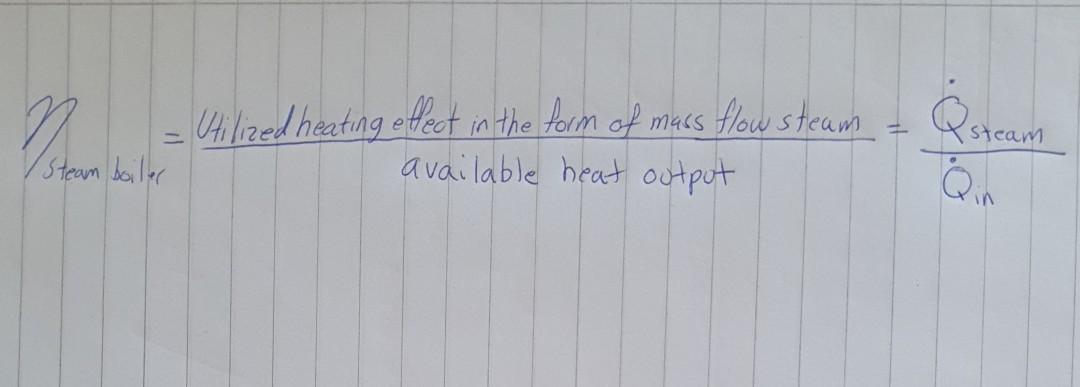 η steam boiler = Utilized heating effect in the form of mass flow steam / available heat output = Q̇ steam / Q̇ in